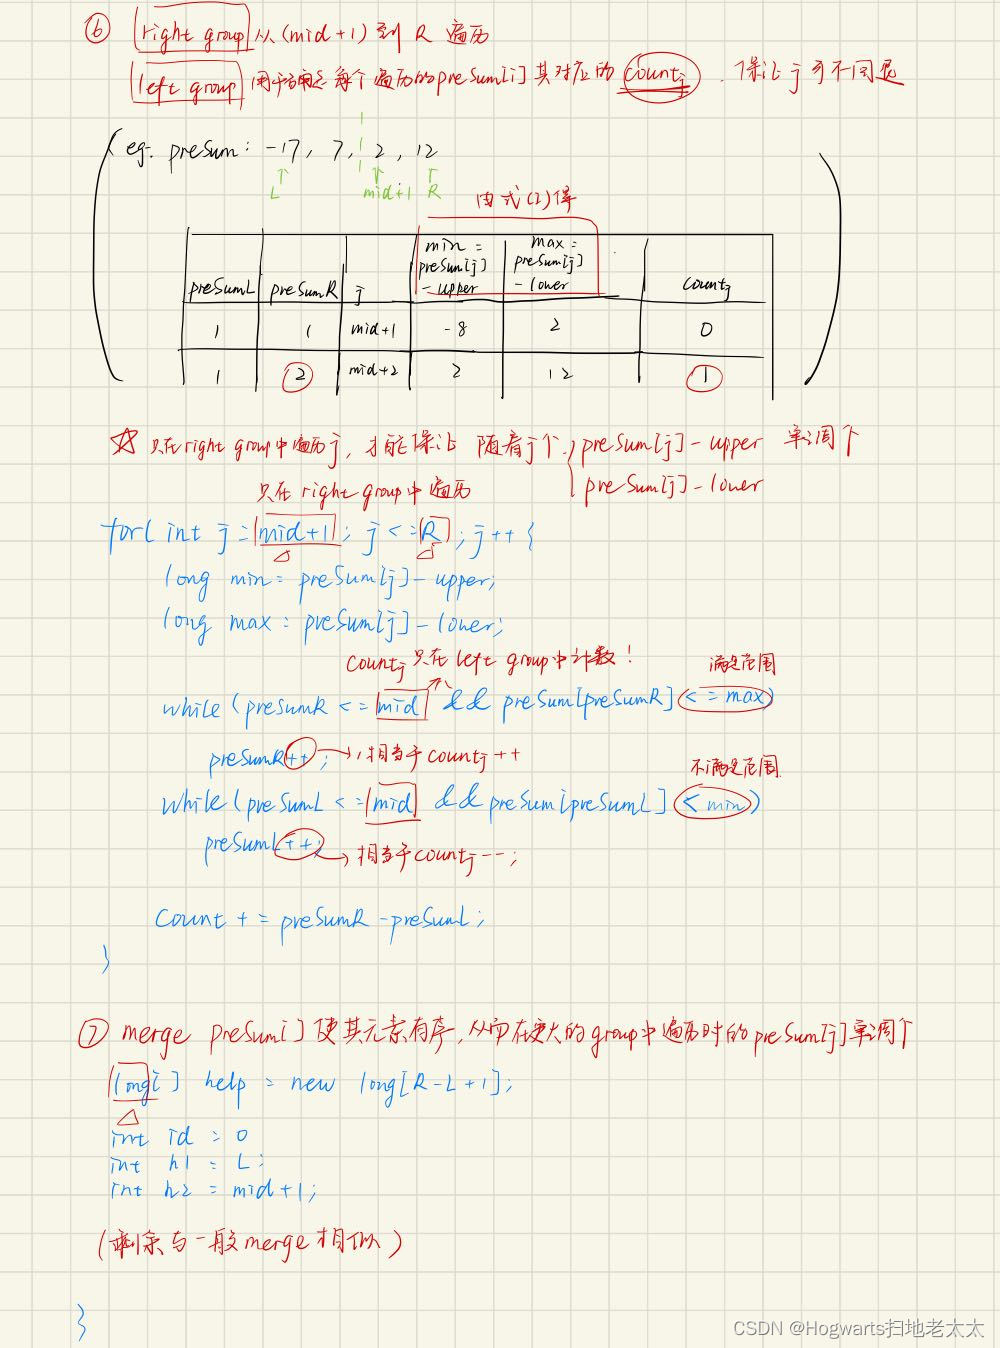 ⑥ right group 从(mid+1) 到 R 遍历
left group 用于确定每个遍历的preSum[i]其对应的 countj . 保证 j 可不回退
eg. preSum: -17, 7, 2, 12
L mid+1 R
由式(2)得
preSumL preSumR j min = preSum[j] - upper max = preSum[j] - lower countj
1 1 mid+1 -8 2 0
1 2 mid+2 2 12 1
☆ 只在right group中遍历 j, 才能保证 随着j个 preSum[j] - upper 单调个
preSum[j] - lower
只在 right group中遍历
for( int j = mid+1; j <= R; j++ {
long min = preSum[j] - upper;
long max = preSum[j] - lower;
countj 只在 left group中计数! 满足范围
while (preSumR <= mid && preSum[preSumR] <= max)
preSumR++; → 相当于 countj ++
不满足范围
while (preSumL <= mid && preSum[preSumL] < min)
preSumL++; → 相当于countj --;
count += preSumR - preSumL;
}
⑦ merge preSum[] 使其元素有序, 从而在更大的group中遍历时的preSum[j]单调个
long[] help = new long[R-L+1];
int id = 0
int h1 = L;
int h2 = mid+1;
(剩余与一般merge相似)
}
CSDN @Hogwarts扫地老太太